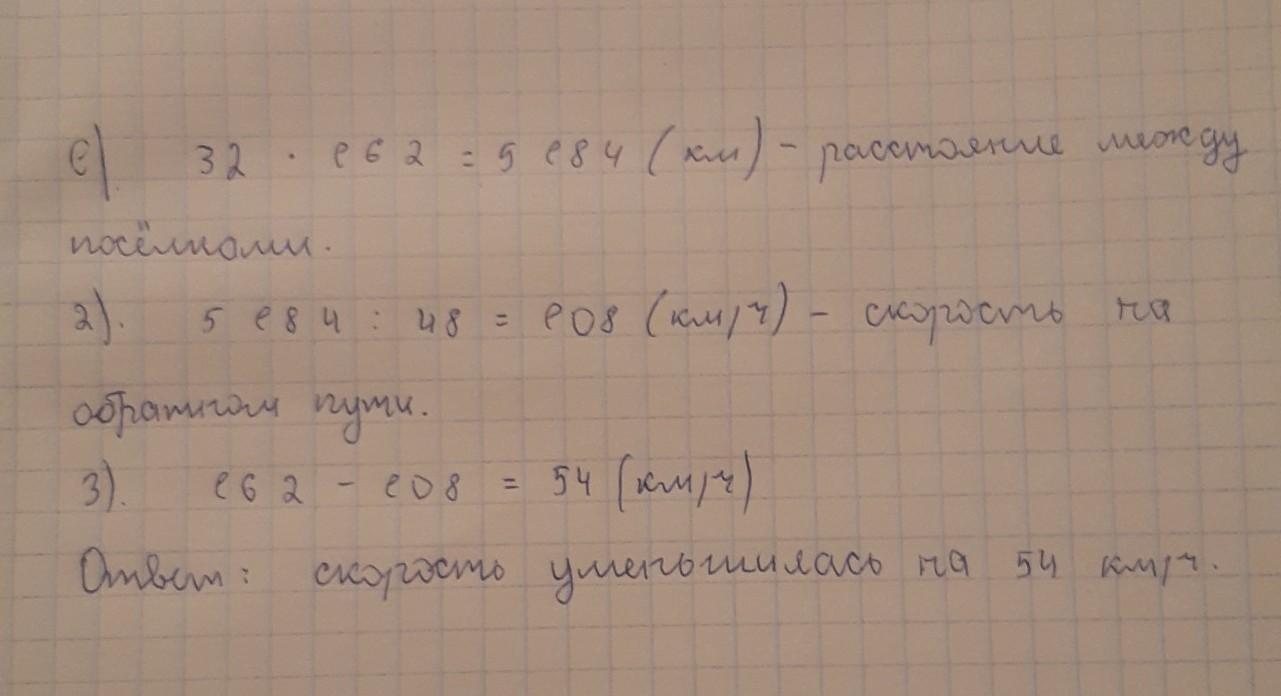 1) 32 · 162 = 5184 (км) - расстояние между
посёлками.
2). 5184 : 48 = 108 (км/ч) - скорость на
обратном пути.
3). 162 - 108 = 54 (км/ч)
Ответ: скорость уменьшилась на 54 км/ч.